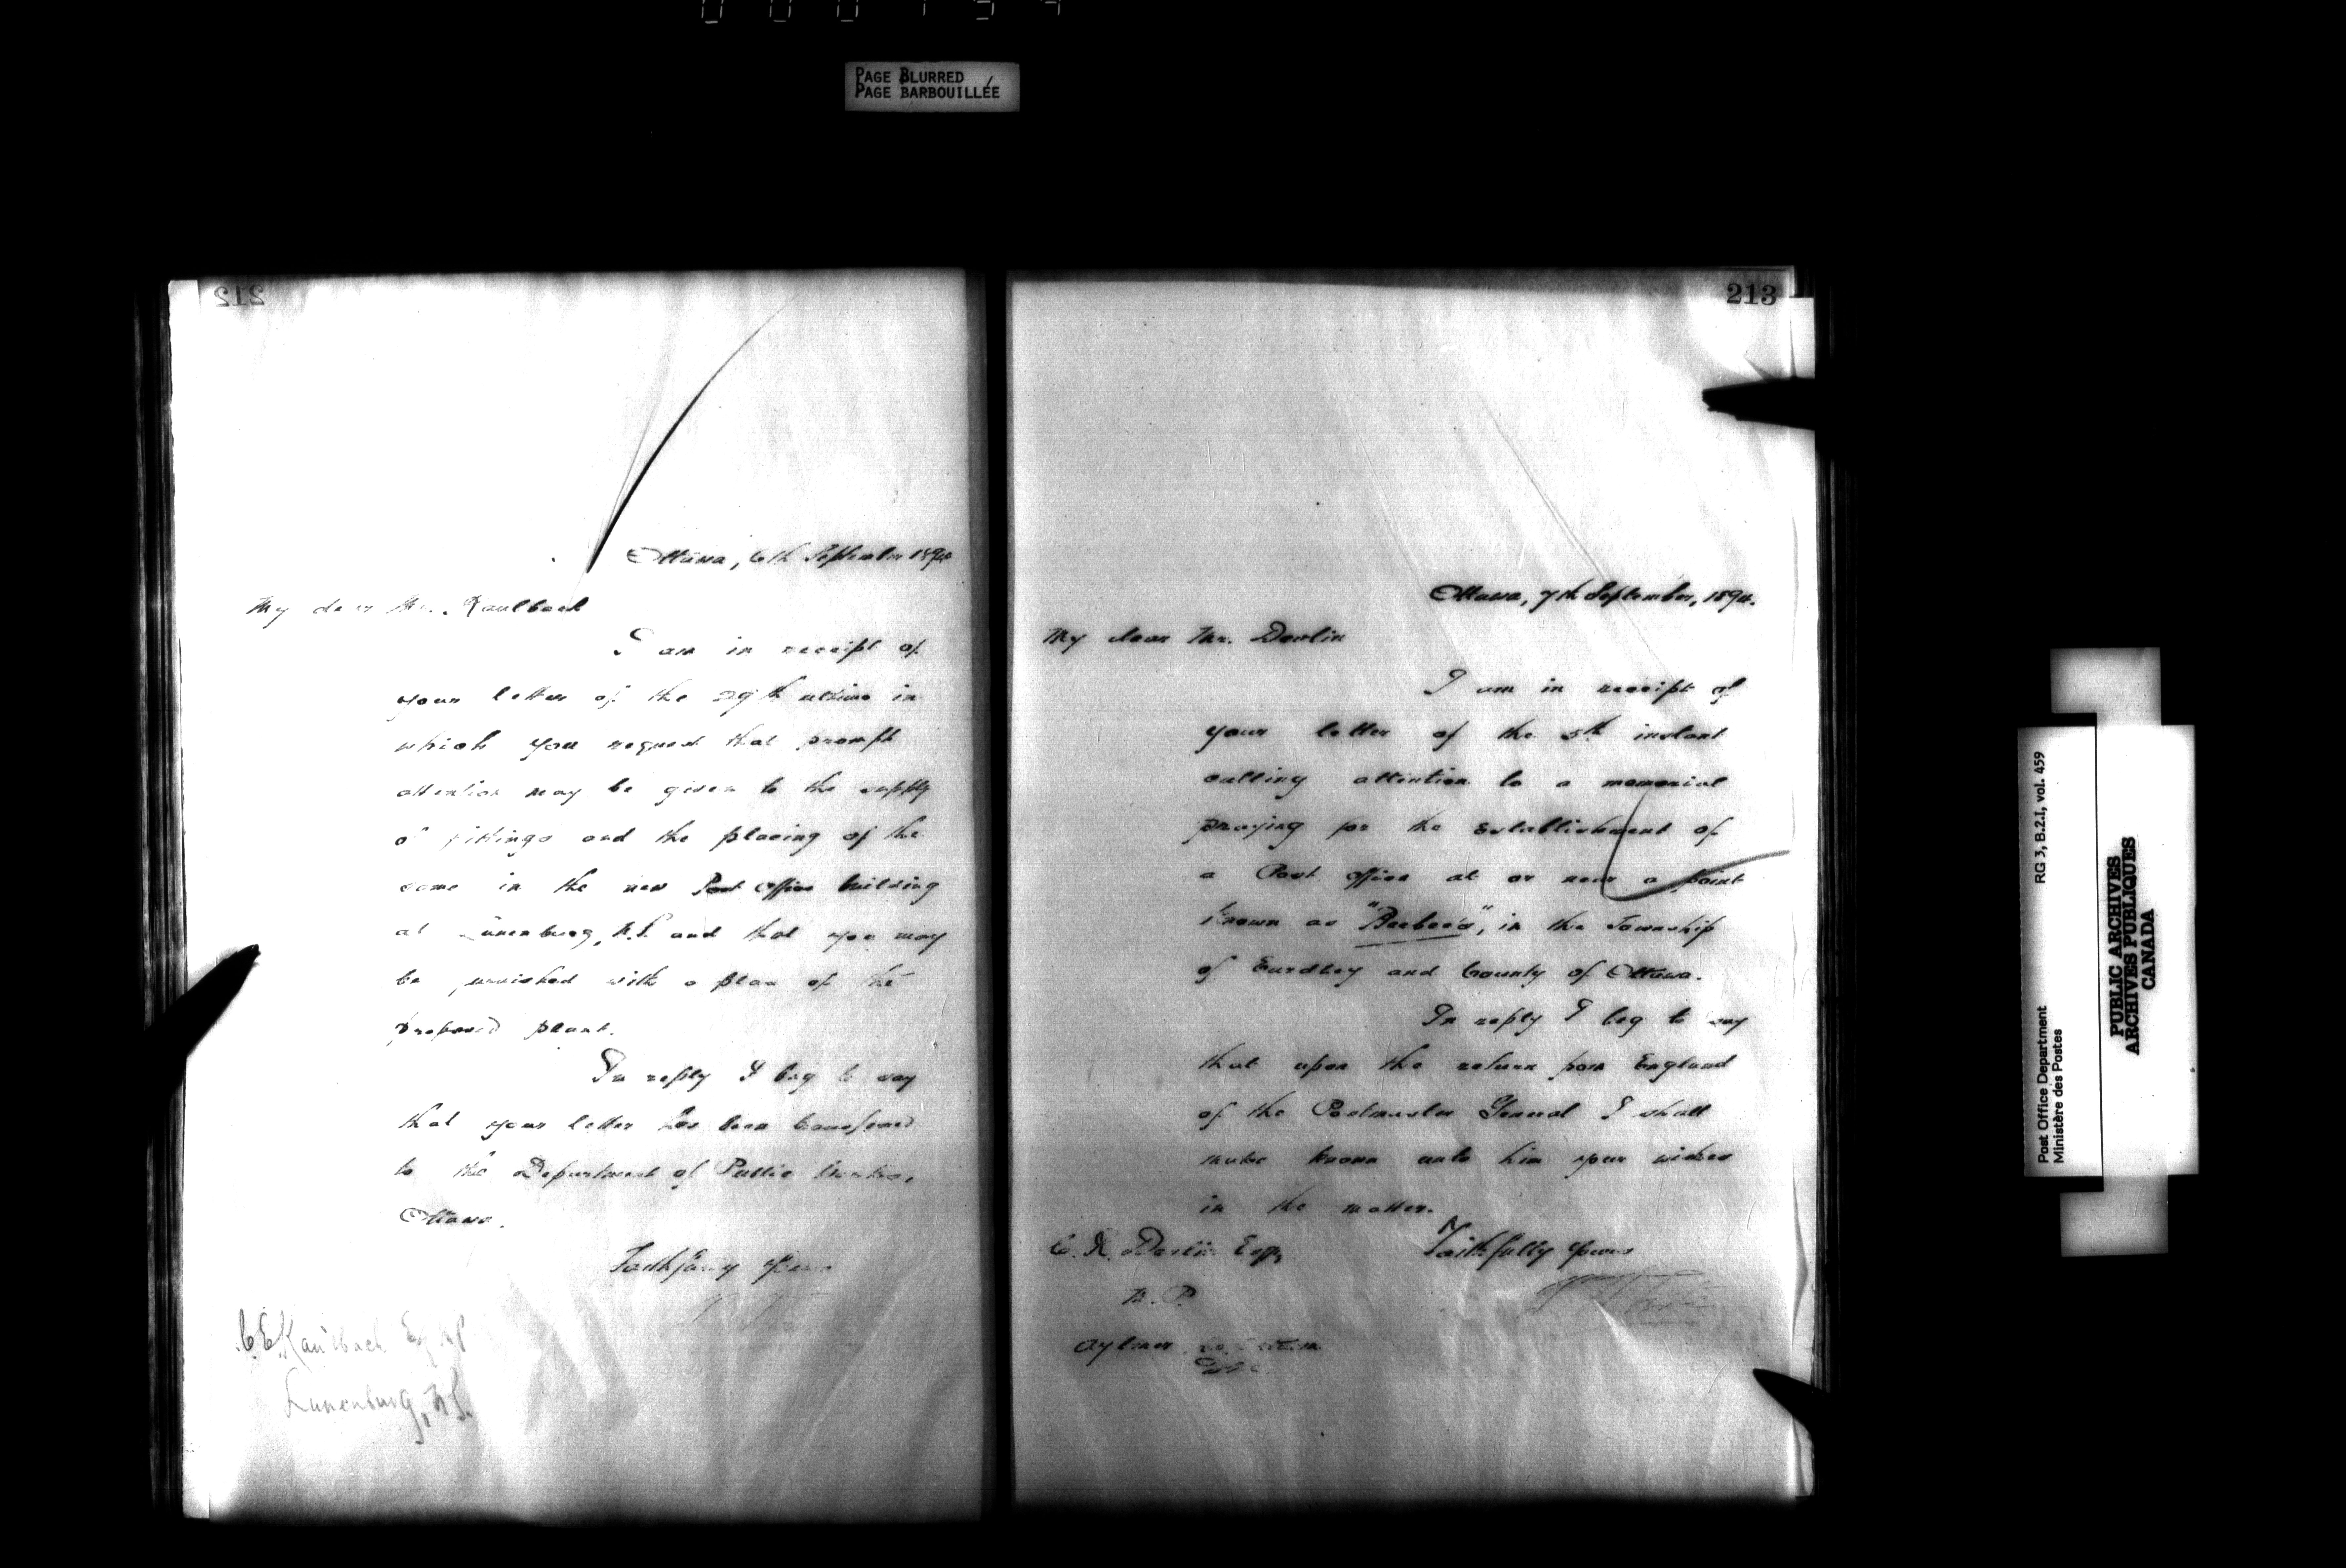 PAGE BLURRED
PAGE BARBOUILLÉE
212
Ottawa, 6th September 1894
My dear Mr. Kaulbach
I am in receipt of
your letter of the 29th ultimo in
which you request that prompt
attention may be given to the supply
of fittings and the placing of the
same in the new Post Office building
at Lunenburg, N.S. and that you may
be furnished with a plan of the
proposed plant.
In reply I beg to say
that your letter has been transferred
to the Department of Public Works,
Ottawa.
Faithfully yours
C.E. Kaulbach Esq. MP
Lunenburg, N.S.
213
Ottawa, 7th September, 1894.
My dear Mr. Devlin
I am in receipt of
your letter of the 5th instant
calling attention to a memorial
praying for the establishment of
a Post Office at or near a point
known as "Beebee's", in the Township
of Eardley and County of Ottawa.
In reply I beg to say
that upon the return from England
of the Postmaster General I shall
make known unto him your wishes
in the matter.
Faithfully yours
C. R. Devlin Esq.,
M. P.
Aylmer
RG 3, B.2.I, vol. 459
Post Office Department
Ministère des Postes
PUBLIC ARCHIVES
ARCHIVES PUBLIQUES
CANADA